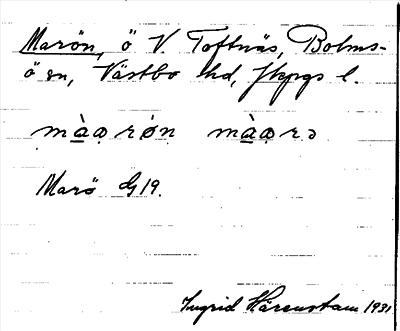 Marön, ö V. Toftnäs, Bolms-
ö sn, Västbo hd, Jkpgs l.
màarön màarə
Marö G 19.
Ingrid Härenstam 1931